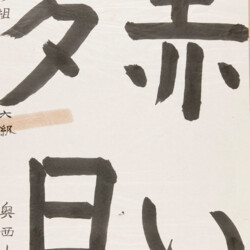 赤い
夕日
組 六級 奥